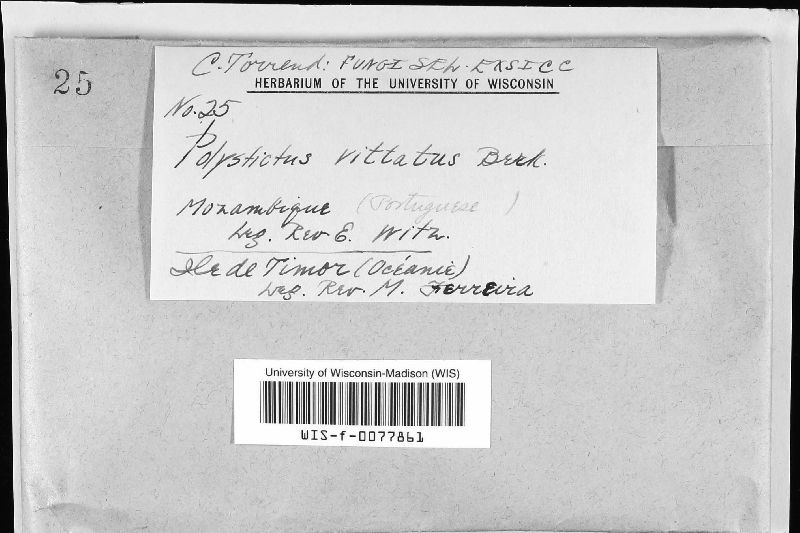 25
C. Torrend: FUNGI SEL. EXSICC
HERBARIUM OF THE UNIVERSITY OF WISCONSIN
No. 25
Polystictus vittatus Berk.
Mozambique (Portuguese )
Leg. Rev E. Witz.
Ile de Timor (Océanie)
Leg. Rev. M. Ferreira
University of Wisconsin-Madison (WIS)
WIS-f-0077861